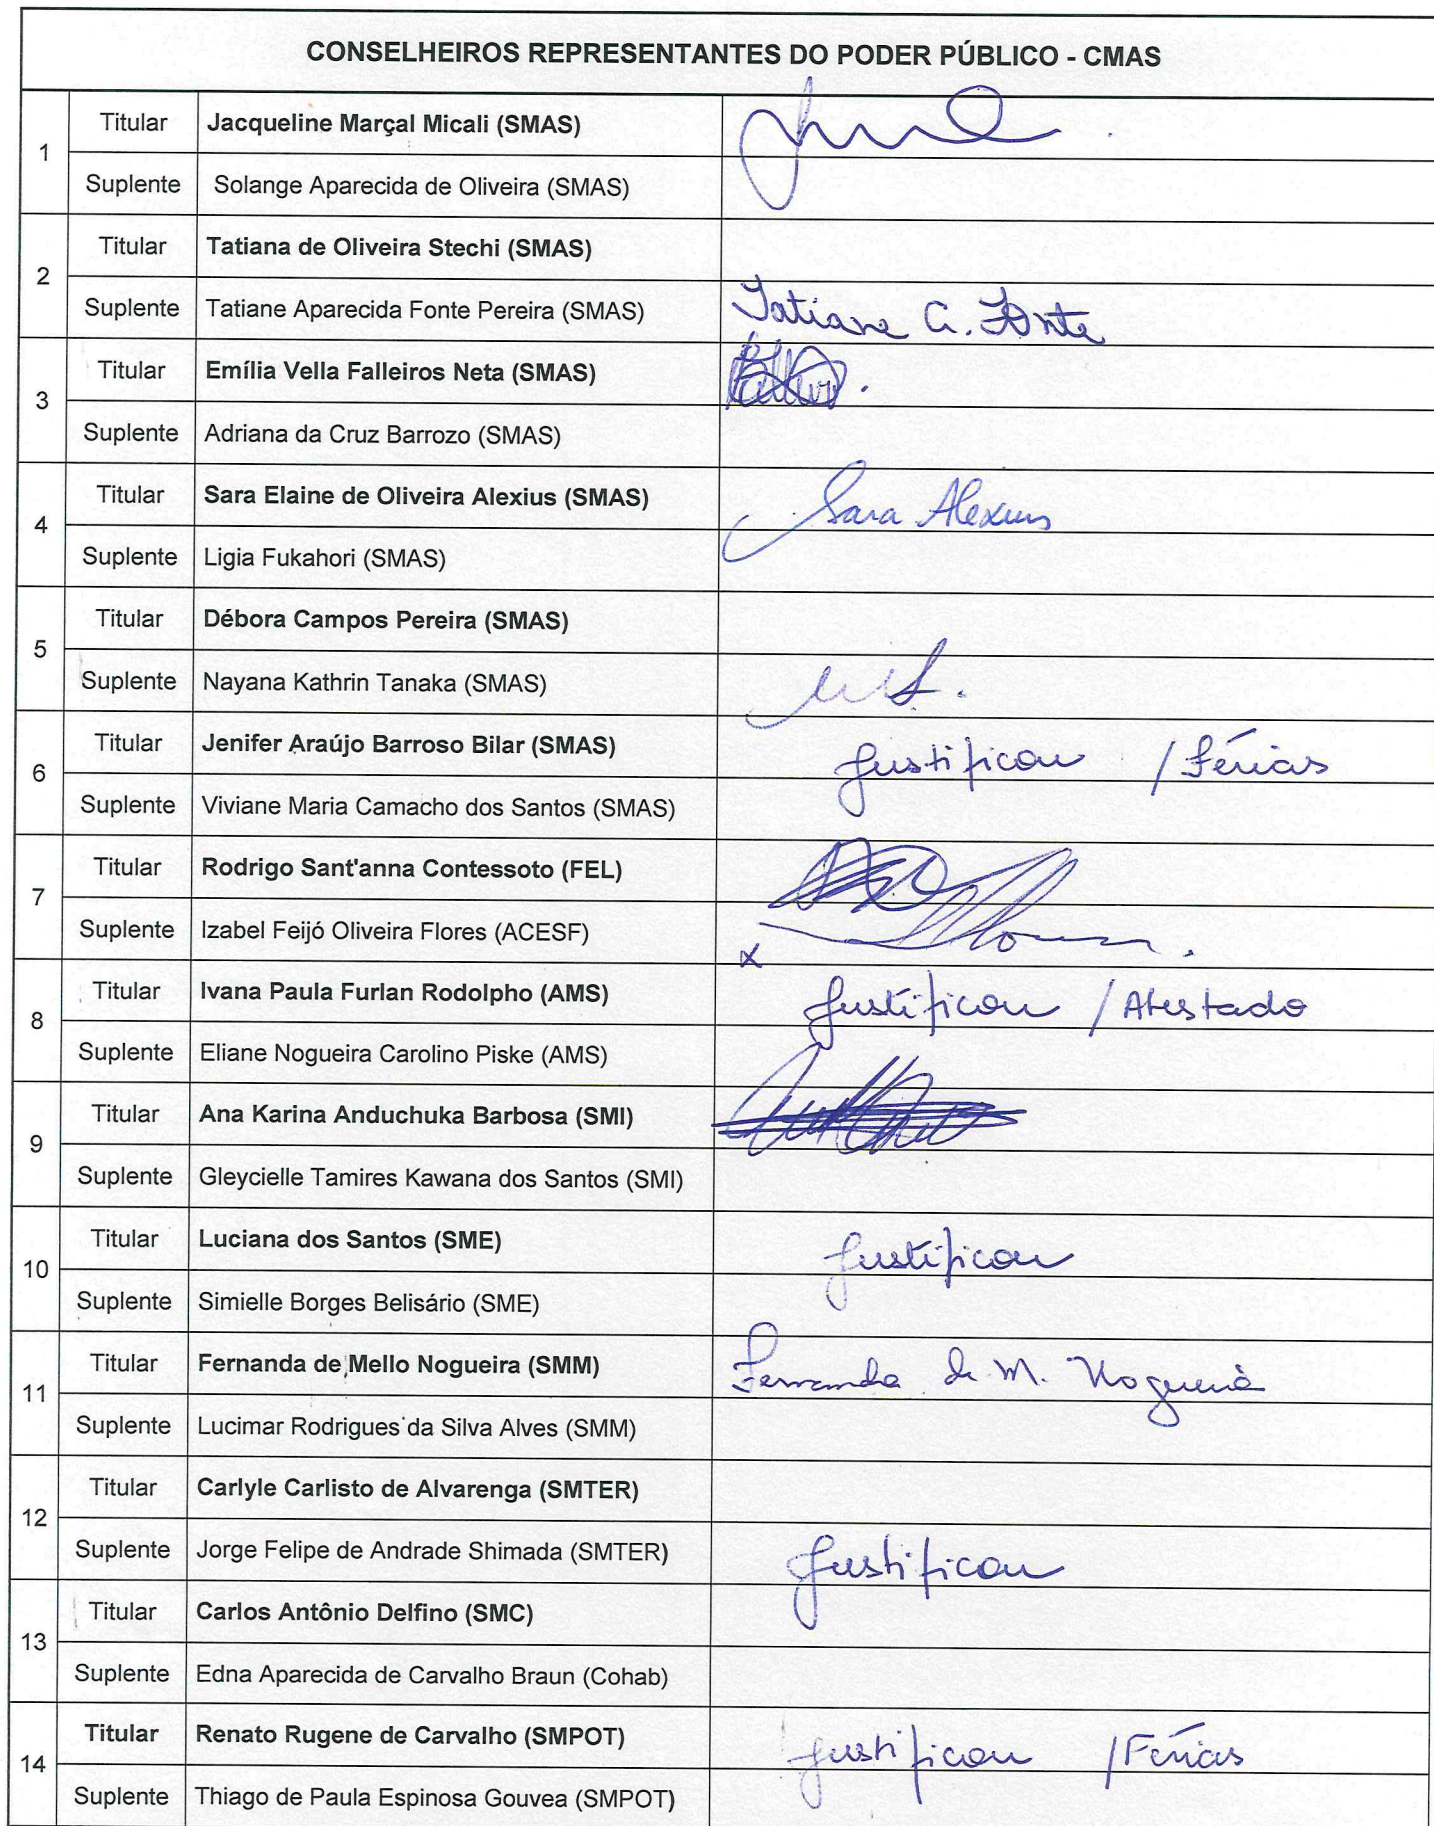 CONSELHEIROS REPRESENTANTES DO PODER PÚBLICO - CMAS
1 Titular Jacqueline Marçal Micali (SMAS)
Suplente Solange Aparecida de Oliveira (SMAS)
2 Titular Tatiana de Oliveira Stechi (SMAS)
Suplente Tatiane Aparecida Fonte Pereira (SMAS) Tatiane A. Fonte
3 Titular Emília Vella Falleiros Neta (SMAS)
Suplente Adriana da Cruz Barrozo (SMAS)
4 Titular Sara Elaine de Oliveira Alexius (SMAS) Sara Alexius
Suplente Ligia Fukahori (SMAS)
5 Titular Débora Campos Pereira (SMAS)
Suplente Nayana Kathrin Tanaka (SMAS)
6 Titular Jenifer Araújo Barroso Bilar (SMAS) Justificou / Férias
Suplente Viviane Maria Camacho dos Santos (SMAS)
7 Titular Rodrigo Sant'anna Contessoto (FEL)
Suplente Izabel Feijó Oliveira Flores (ACESF)
x
8 Titular Ivana Paula Furlan Rodolpho (AMS) Justificou / Atestado
Suplente Eliane Nogueira Carolino Piske (AMS)
9 Titular Ana Karina Anduchuka Barbosa (SMI)
Suplente Gleycielle Tamires Kawana dos Santos (SMI)
10 Titular Luciana dos Santos (SME) Justificou
Suplente Simielle Borges Belisário (SME)
11 Titular Fernanda de Mello Nogueira (SMM) Fernanda de M. Nogueira
Suplente Lucimar Rodrigues da Silva Alves (SMM)
12 Titular Carlyle Carlisto de Alvarenga (SMTER)
Suplente Jorge Felipe de Andrade Shimada (SMTER) Justificou
13 Titular Carlos Antônio Delfino (SMC)
Suplente Edna Aparecida de Carvalho Braun (Cohab)
14 Titular Renato Rugene de Carvalho (SMPOT) Justificou / Férias
Suplente Thiago de Paula Espinosa Gouvea (SMPOT)